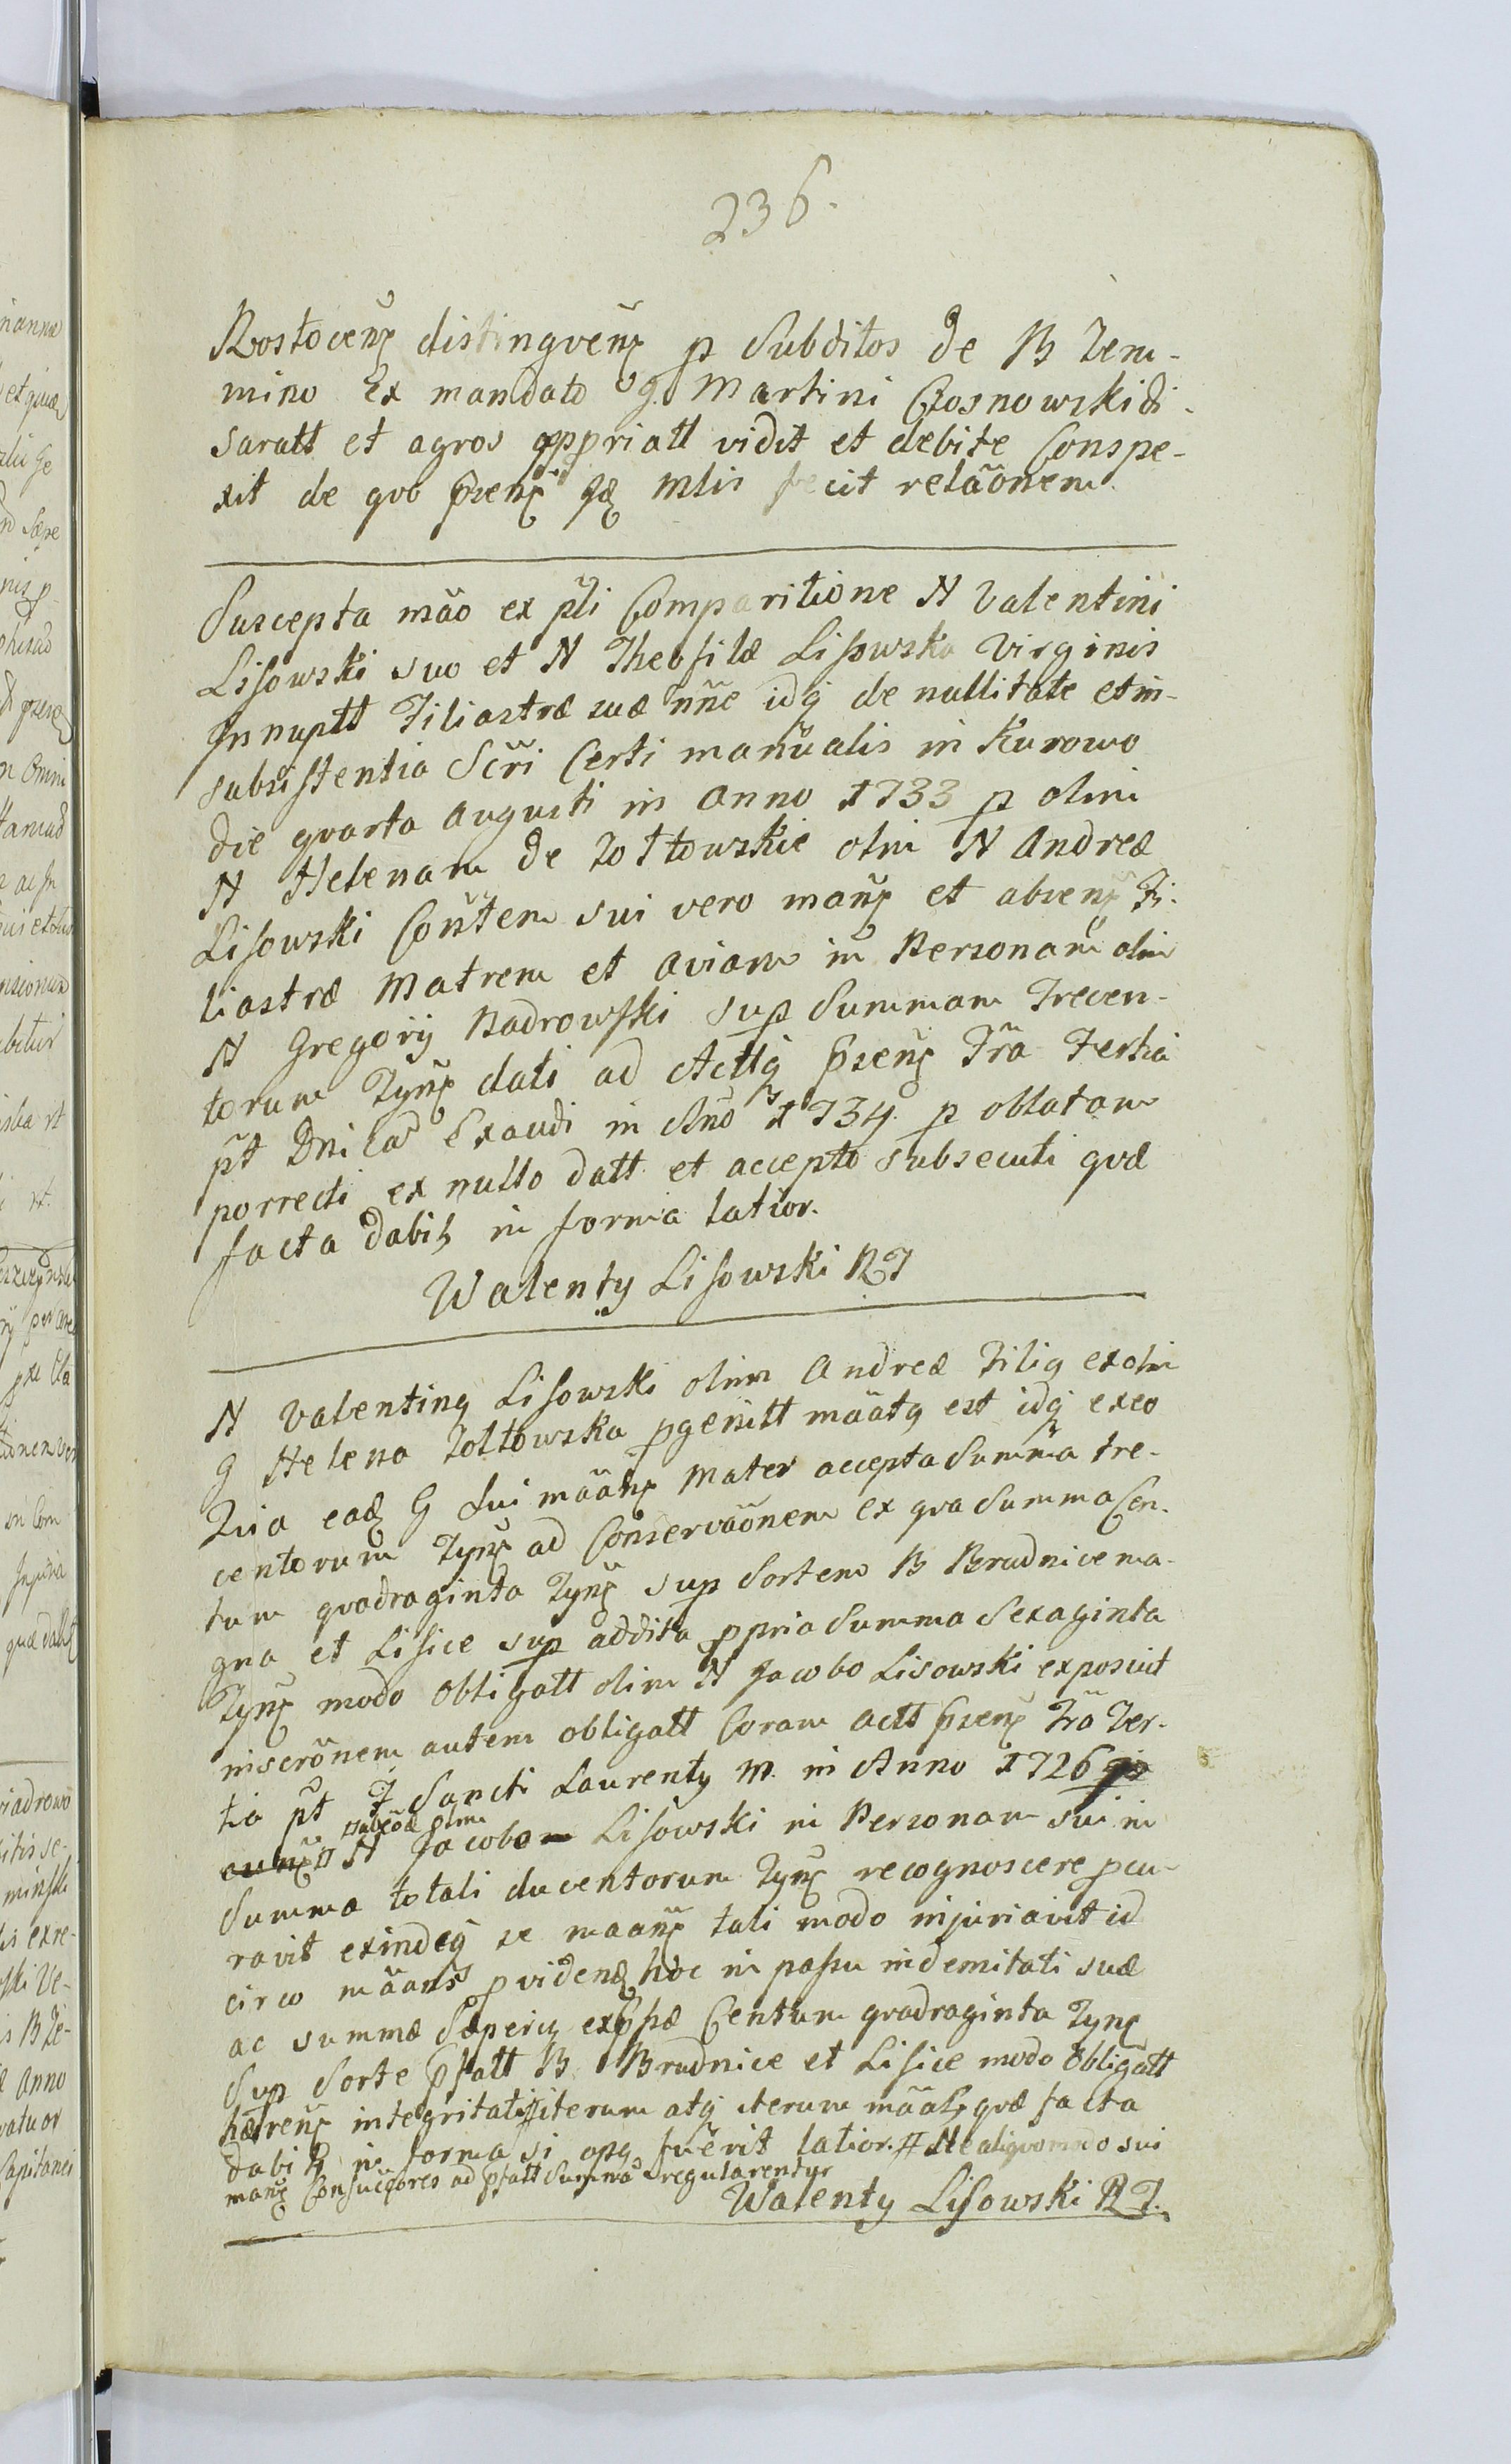 236.
Rostocenś distingvenś p Subditos de B Zem-
mino Ex mandato G. Martini Cłosnowski di-
saratt et agros appriatt vidit et debite Conspe-
xit de qvo Pzenś Jg Mlis fecit relãonem.
Suscepta mão ex pti Comparitione N Valentini
Lisowski suo et N Theofilæ Lisowska Virginis
Innuptt Filiastræ suæ nñe idq de nullitate et in-
subsistentia Scri Certi manualis in Kurowo
die qvarta Augusti in Anno 1733 p olim
N Helenam de Zołtowskie olim N Andreæ
Lisowski Coñtem sui vero manś et absenś Fi-
liastræ Matrem et aviam in Personam olim
N Gregorij Nadrowski Sup Summam Trecen-
torum Zynś dati ad Acttq Pzenś Fra Tertia
pt Dnica Exaudi in Ano 1734. p oblatam
porrecti ex nullo datt et accepto subsecuti qvæ
facta dabit in forma latior.
Walenty Lisowski RJ
N Valentinq Lisowski olim Andreæ Filiq ex olim
G Helena Zołtowska pgenitt mãatq est idq ex eo
Qvia eadę G Sui mãanś Mater accepta Summa tre-
centorum Zynś ad Conservãonem ex qva Summa Cen-
tum qvadraginta Zynś sup Sortem B Brudnice ma-
gna et Lisice sup addita ppria Summa Sexaginta
Zynś modo Obligatt olim N Jacobo Lisowski exposuit
inscrõnem autem obligatt Coram actt Pzenś Fra Ter-
tia pt F Sancti Laurenty M. in Anno 1726
N Jacobo Lisowski in Personam sui in
Summa totali ducentorum Zynś recognoscere pcu-
ravit exindeq se maanś tali modo injuriavit id
circo mãans pvidenś hoc in passu indemitati suæ
ac summæ Sæpericz expssæ Centum qvadraginta Zynś
Sup Sorte Pfatt B Brudnice et Lisice modo Obligatt
hærenś integritati # iterum atq iterum mãat qvæ facta
dabit in forma si opq fuerit latior. # Ne aliqvomodo sui
manś Consuccores ad Pfatt Summa regularentur
Walenty Lisowski RJ.